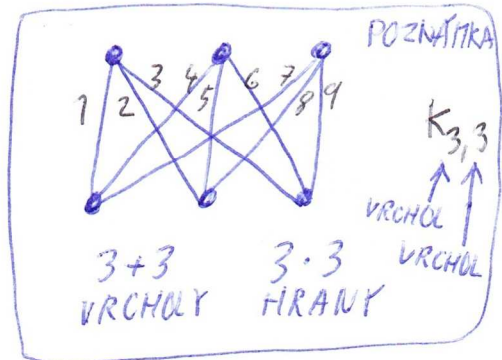 POZNÁMKA
1 2 3 4 5 6 7 8 9
K3,3
VRCHOL
VRCHOL
3+3
VRCHOLY
3·3
HRANY